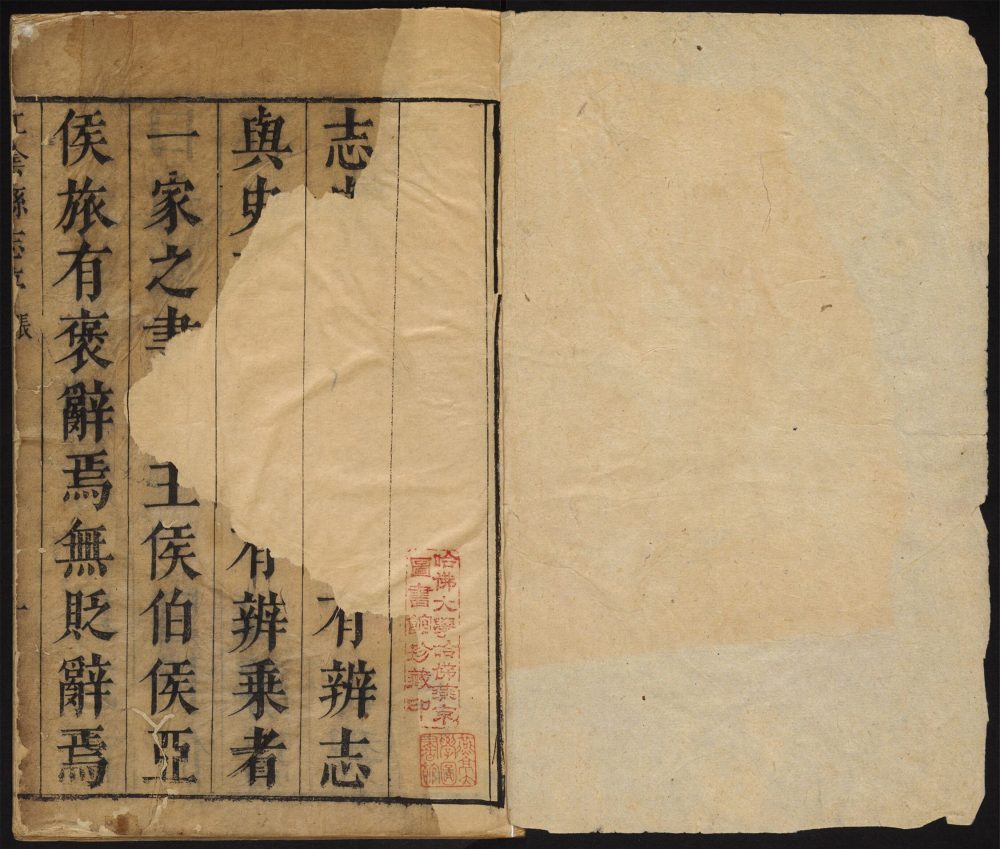 哈佛大學哈佛燕京
圖書館珍藏印
燕京大
學圖
書館
志 有辨志
與史 有辨乘者
一家之書 主侯伯侯亞
侯旅有褒辭焉無貶辭焉
江陰縣志序 張 一